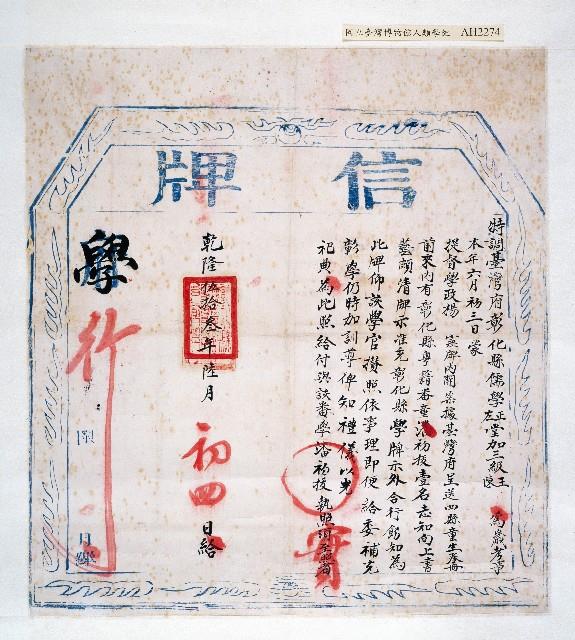 國立臺灣博物館人類學組 AH2274
信牌
特調臺灣府彰化縣儒學正左堂加三級王陳 為歲考事
本年六月初三日蒙
提督學政楊 憲牌內開案據臺灣府呈送四縣童生眷冊
前來內有彰化縣粵籍番童潘初拔壹名志和向上書
藝頗清牌示准充彰化縣學牌示外合行飭知為
此牌仰該學官攢照依事理即便給委補充
彰學仍時加訓導俾知禮儀以光
祀典為此照給付與該番學潘初拔執照須至牌者
實
乾隆伍拾叁年陸月初四日給
學
行
限 日繳